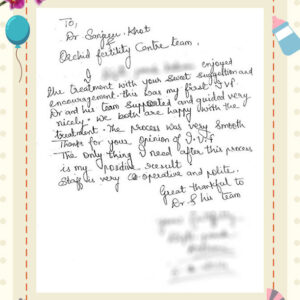 To,
Dr. Sanjeev Khot
Orchid fertility Centre team.
I enjoyed
the treatment with your sweet suggestion and
encouragement. this was my first IVF
Dr and his team supported and guided very
nicely. We both are happy with the
treatment. The process was very smooth
Thanks for your opinion of I.V.f
The only thing I need after this process
is my positive result
Staff is very Co-operative and polite.
Great thankful to
Dr. & his team